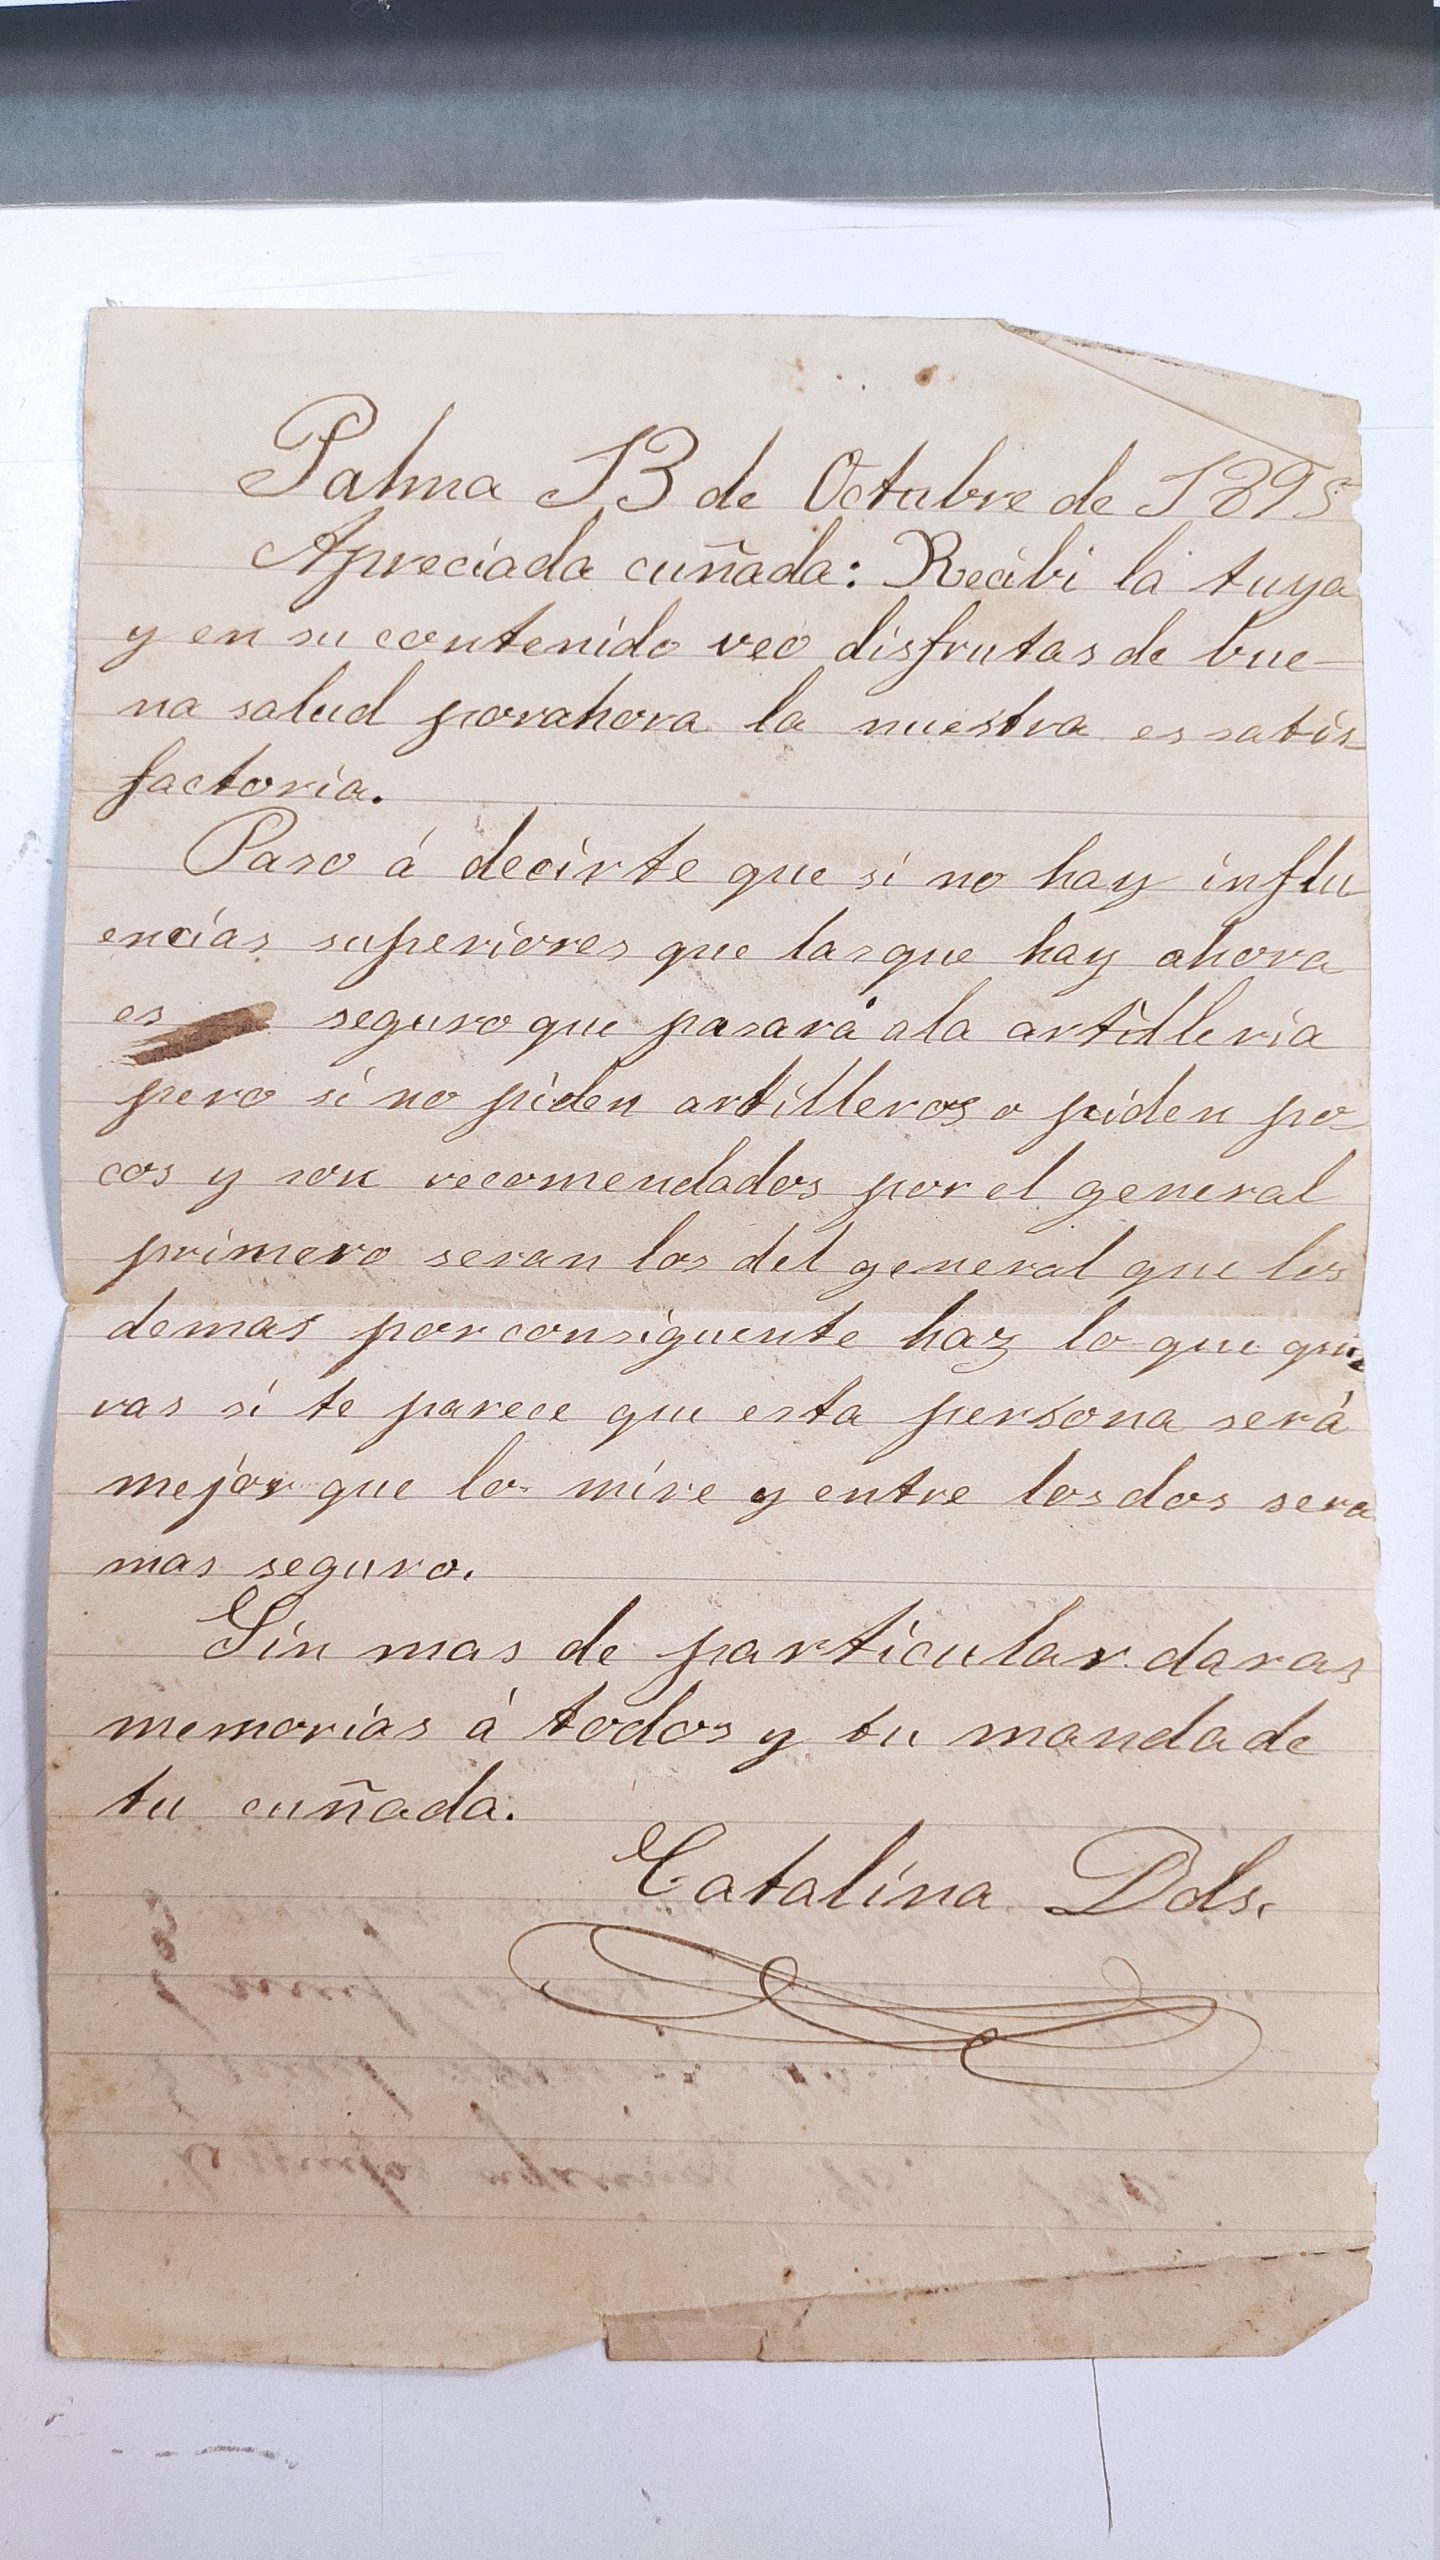 Palma 13 de Octubre de 1895
Apreciada cuñada: Recibi la tuya
y en su contenido veo disfrutas de bue-
na salud porahora la nuestra es satis-
factoria.
Paso á decirte que si no hay influ
encias superiores que las que hay ahora
es seguro que pasará a la artilleria
pero si no piden artilleros o piden po-
cos y son recomendados por el general
primero seran los del general que los
demas por consiguente haz lo que quie
ras si te parece que esta persona será
mejor que lo mire y entre los dos sera
mas seguro.
Sin mas de particular daras
memorias á todos y tu manda de
tu cuñada.
Catalina Dols.